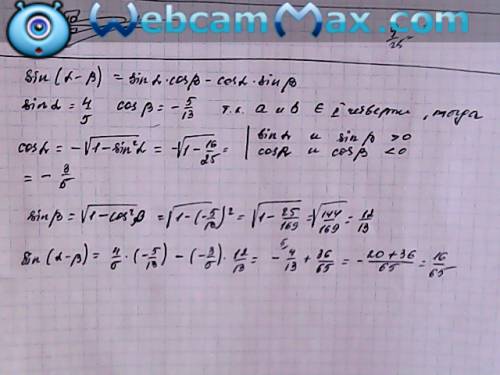 WebcamMax.com
sin(α-β) = sinα·cosβ - cosα·sinβ
sinα = 4/5 cosβ = -5/13 т.к. α и β ∈ II четверти, тогда
cosα = -√1-sin²α = -√1-16/25 = | sinα и sinβ >0
= -3/5 | cosα и cosβ <0
sinβ = √1-cos²β = √1-(-5/13)² = √1-25/169 = √144/169 = 12/13
sin(α-β) = 4/5·(-5/13) - (-3/5)·12/13 = -4/13 + 36/65 = -20+36/65 = 16/65